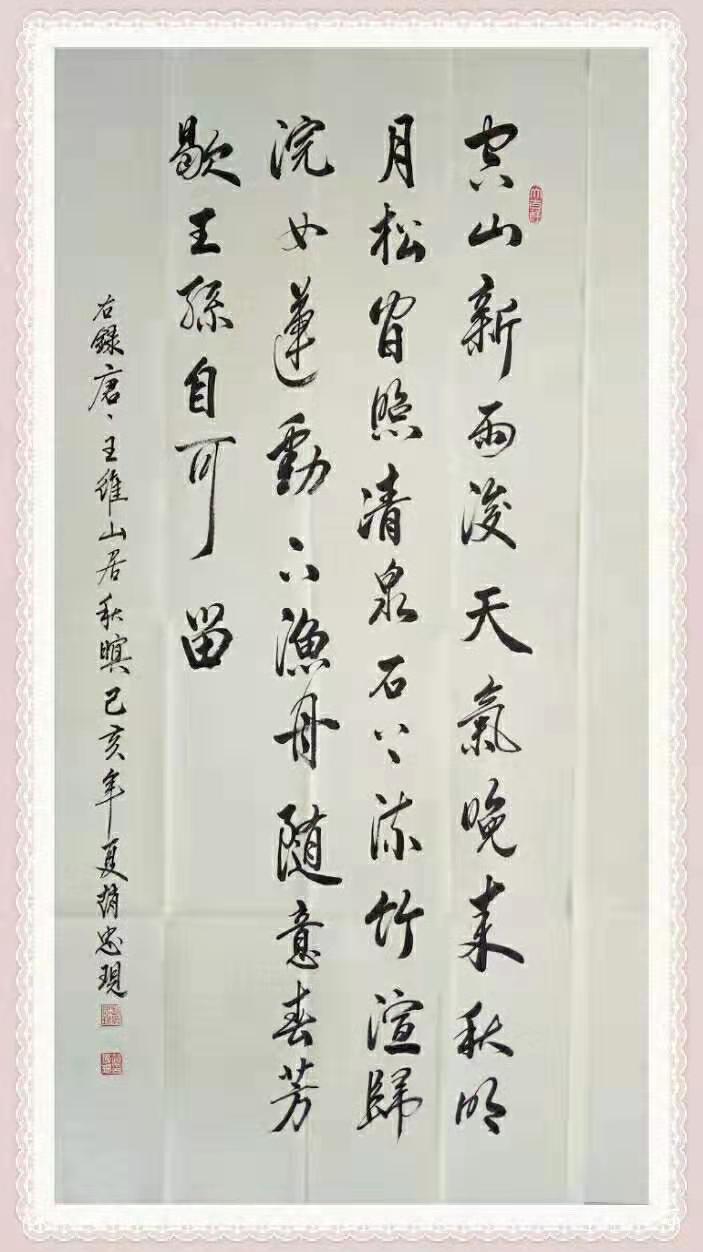 空山新雨後天氣晚来秋明
月松間照清泉石上流竹渲歸
浣女蓮動下漁舟随意春芳
歇王孫自可留
右錄唐、王維山居秋暝己亥年夏趙忠現